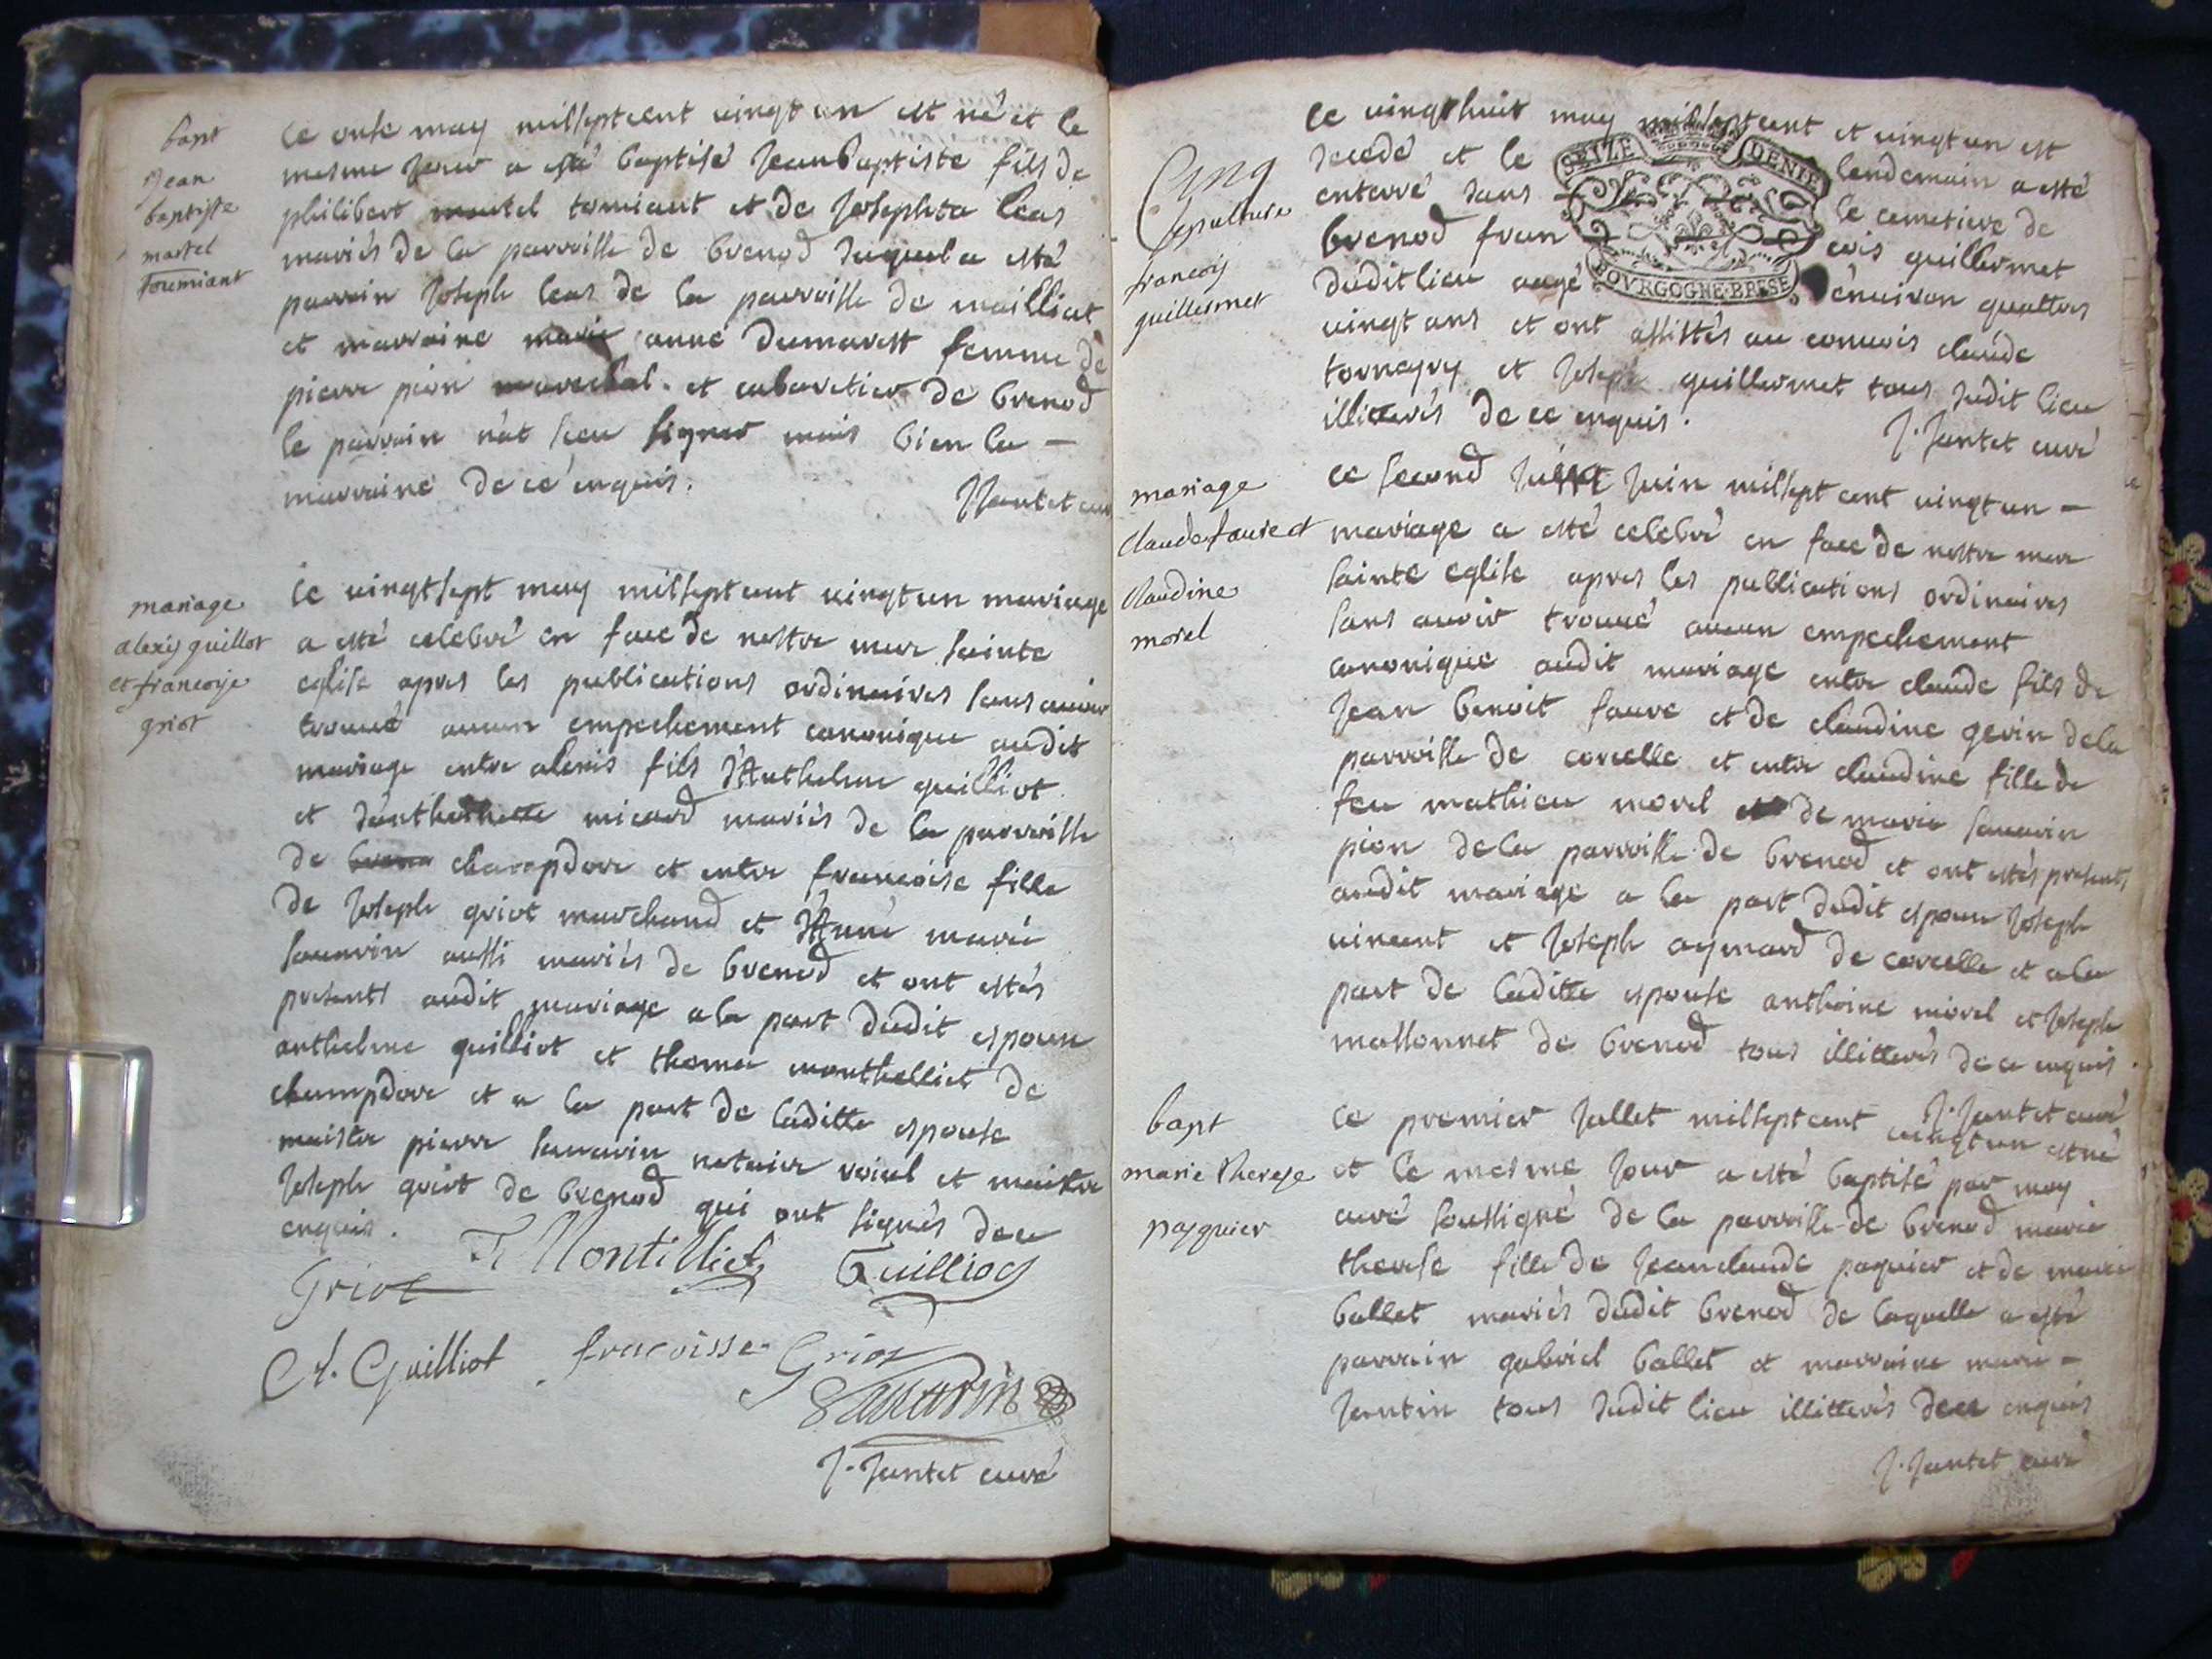 bapt
Jean
baptiste
martel
Toumiant
ce onse may milseptcent vingt un est né et le
mesme Jour a esté baptisé Jean baptiste fils de
philibert martel tomiant et de Josephta leas
mariés de la parroisse de brenod duquel a esté
parrain Joseph leas de la parroisse de mailliat
et marraine marie anne dumarest femme de
pierre pion marechal et cabaretier de brenod
le parrain n'at sceu signer mais bien la -
marraine de ce enquis.
J Jantet curé
mariage
alexis guillot
et francoise
griot
ce vingtsept may milseptcent vingt un mariage
a esté celebré en face de nostre mere sainte
eglise apres les publications ordinaires sans avoir
trouué aucun empechement canonique audit
mariage entre alexis fils d'Anthelme guilliot
et d'anthelmette micard mariés de la parroisse
de champdore et entre francoise fille
de Joseph griot marchand et d'Anne marie
sauarin aussi mariés de brenod et ont estés
presents audit mariage a la part dudit espoux
anthelme guilliot et thoma monthelliet de
champdore et a la part de laditte espouse
maistre pierre sauarin notaire roial et maistre
Joseph griot de brenod qui ont signés de ce
enquis.
Griot T Montilliet Guilliot
A. Guilliot fracoisse Griot
Sauarin
J. Jantet curé
Cinq
sepulture
francois
guillermet
ce vingt huit may milseptcent et vingt un est
decedé et le lendemain a esté
enterré dans le cemetiere de
brenod fran cois guillermet
dudit lieu aagé d'enuiron quattres
vingt ans et ont assistés au conuois claude
torneyry et Joseph guillermet tous dudit lieu
illitterés de ce enquis.
J. Jantet curé
SEIZE DENIE
BOVRGOGNE·BRESE
mariage
claude faure et
claudine
morel
ce second Juin milsept cent vingt un -
mariage a esté celebré en face de nostre mere
sainte eglise apres les publications ordinaires
sans auoir trouué aucun empechement
canonique audit mariage entre claude fils de
Jean benoit faure et de claudine gerin de la
parroisse de corcelle et entre claudine fille de
feu mathieu morel et de marie sauarin
pion de la parroisse de brenod et ont estés presents
audit mariage a la part dudit espoux Joseph
uincent et Joseph aymard de corcelle et a la
part de laditte espouse anthoine morel et Joseph
massonnet de brenod tous illitterés de ce enquis.
J. Jantet curé
bapt
marie therese
pasquier
ce premier Jullet milseptcent vingt un est né
et le mesme Jour a esté baptisé par moy
curé soussigné de la parroisse de brenod marie
therese fille de Jean claude paquier et de marie
ballet mariés dudit brenod de laquelle a esté
parrain gabriel ballet et marraine marie -
Jantin tous dudit lieu illitterés de ce enquis
J. Jantet curé